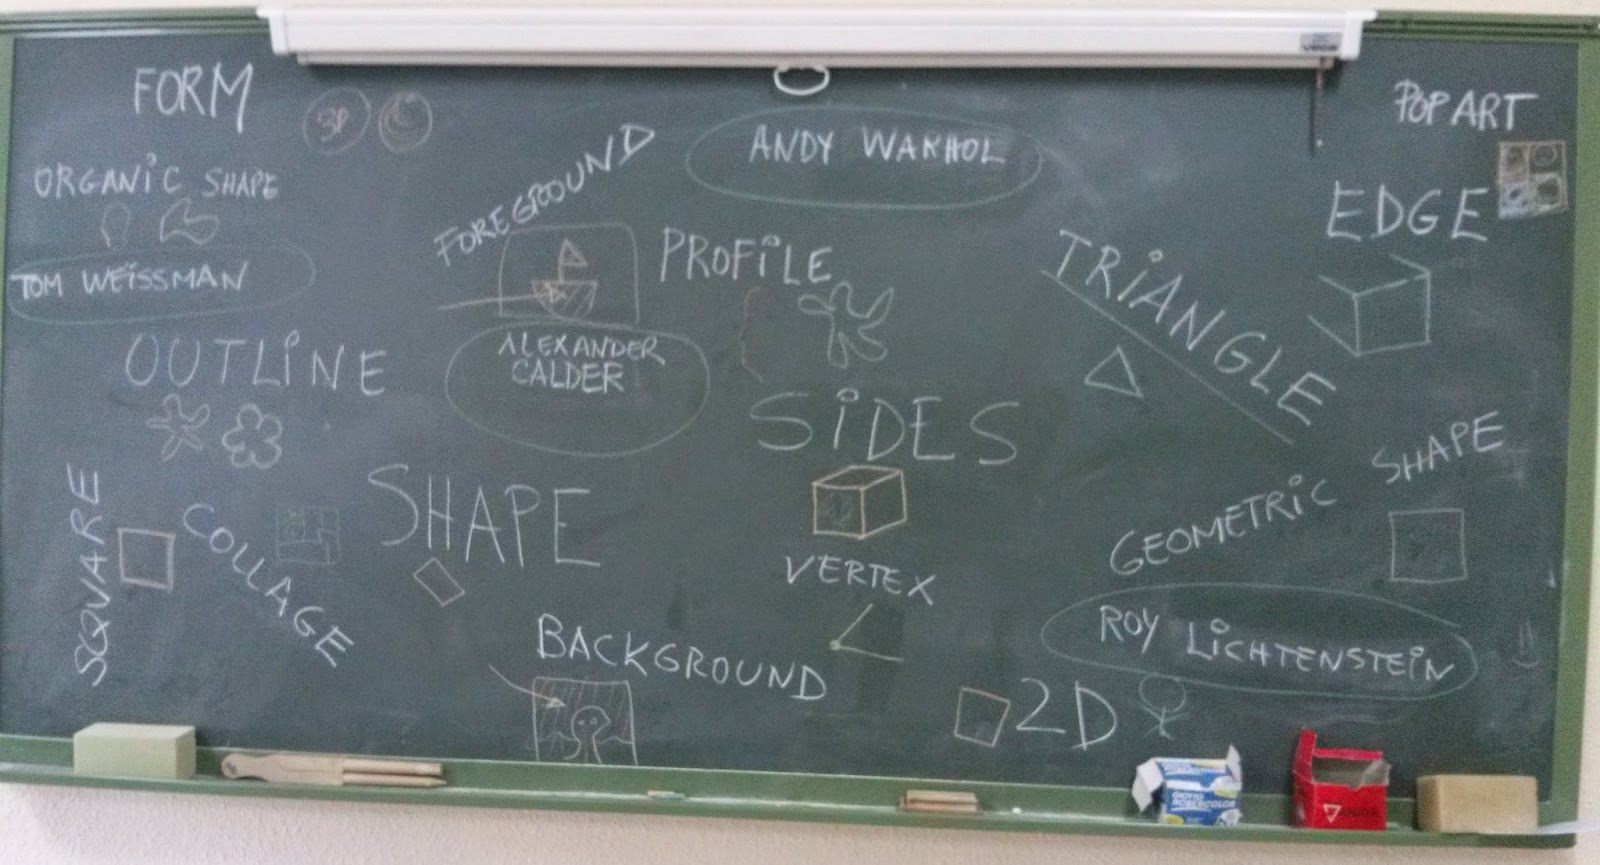 FORM
3D
POP ART
ANDY WARHOL
FOREGROUND
ORGANiC SHAPE
EDGE
TOM WEiSSMAN
PROFiLE
TRiANGLE
OUTLiNE
ALEXANDER
CALDER
SiDES
SHAPE
GEOMETRiC SHAPE
SQUARE
COLLAGE
VERTEX
ROY LiCHTENSTEiN
BACKGROUND
2D
GIOTTO
ROBERCOLOR